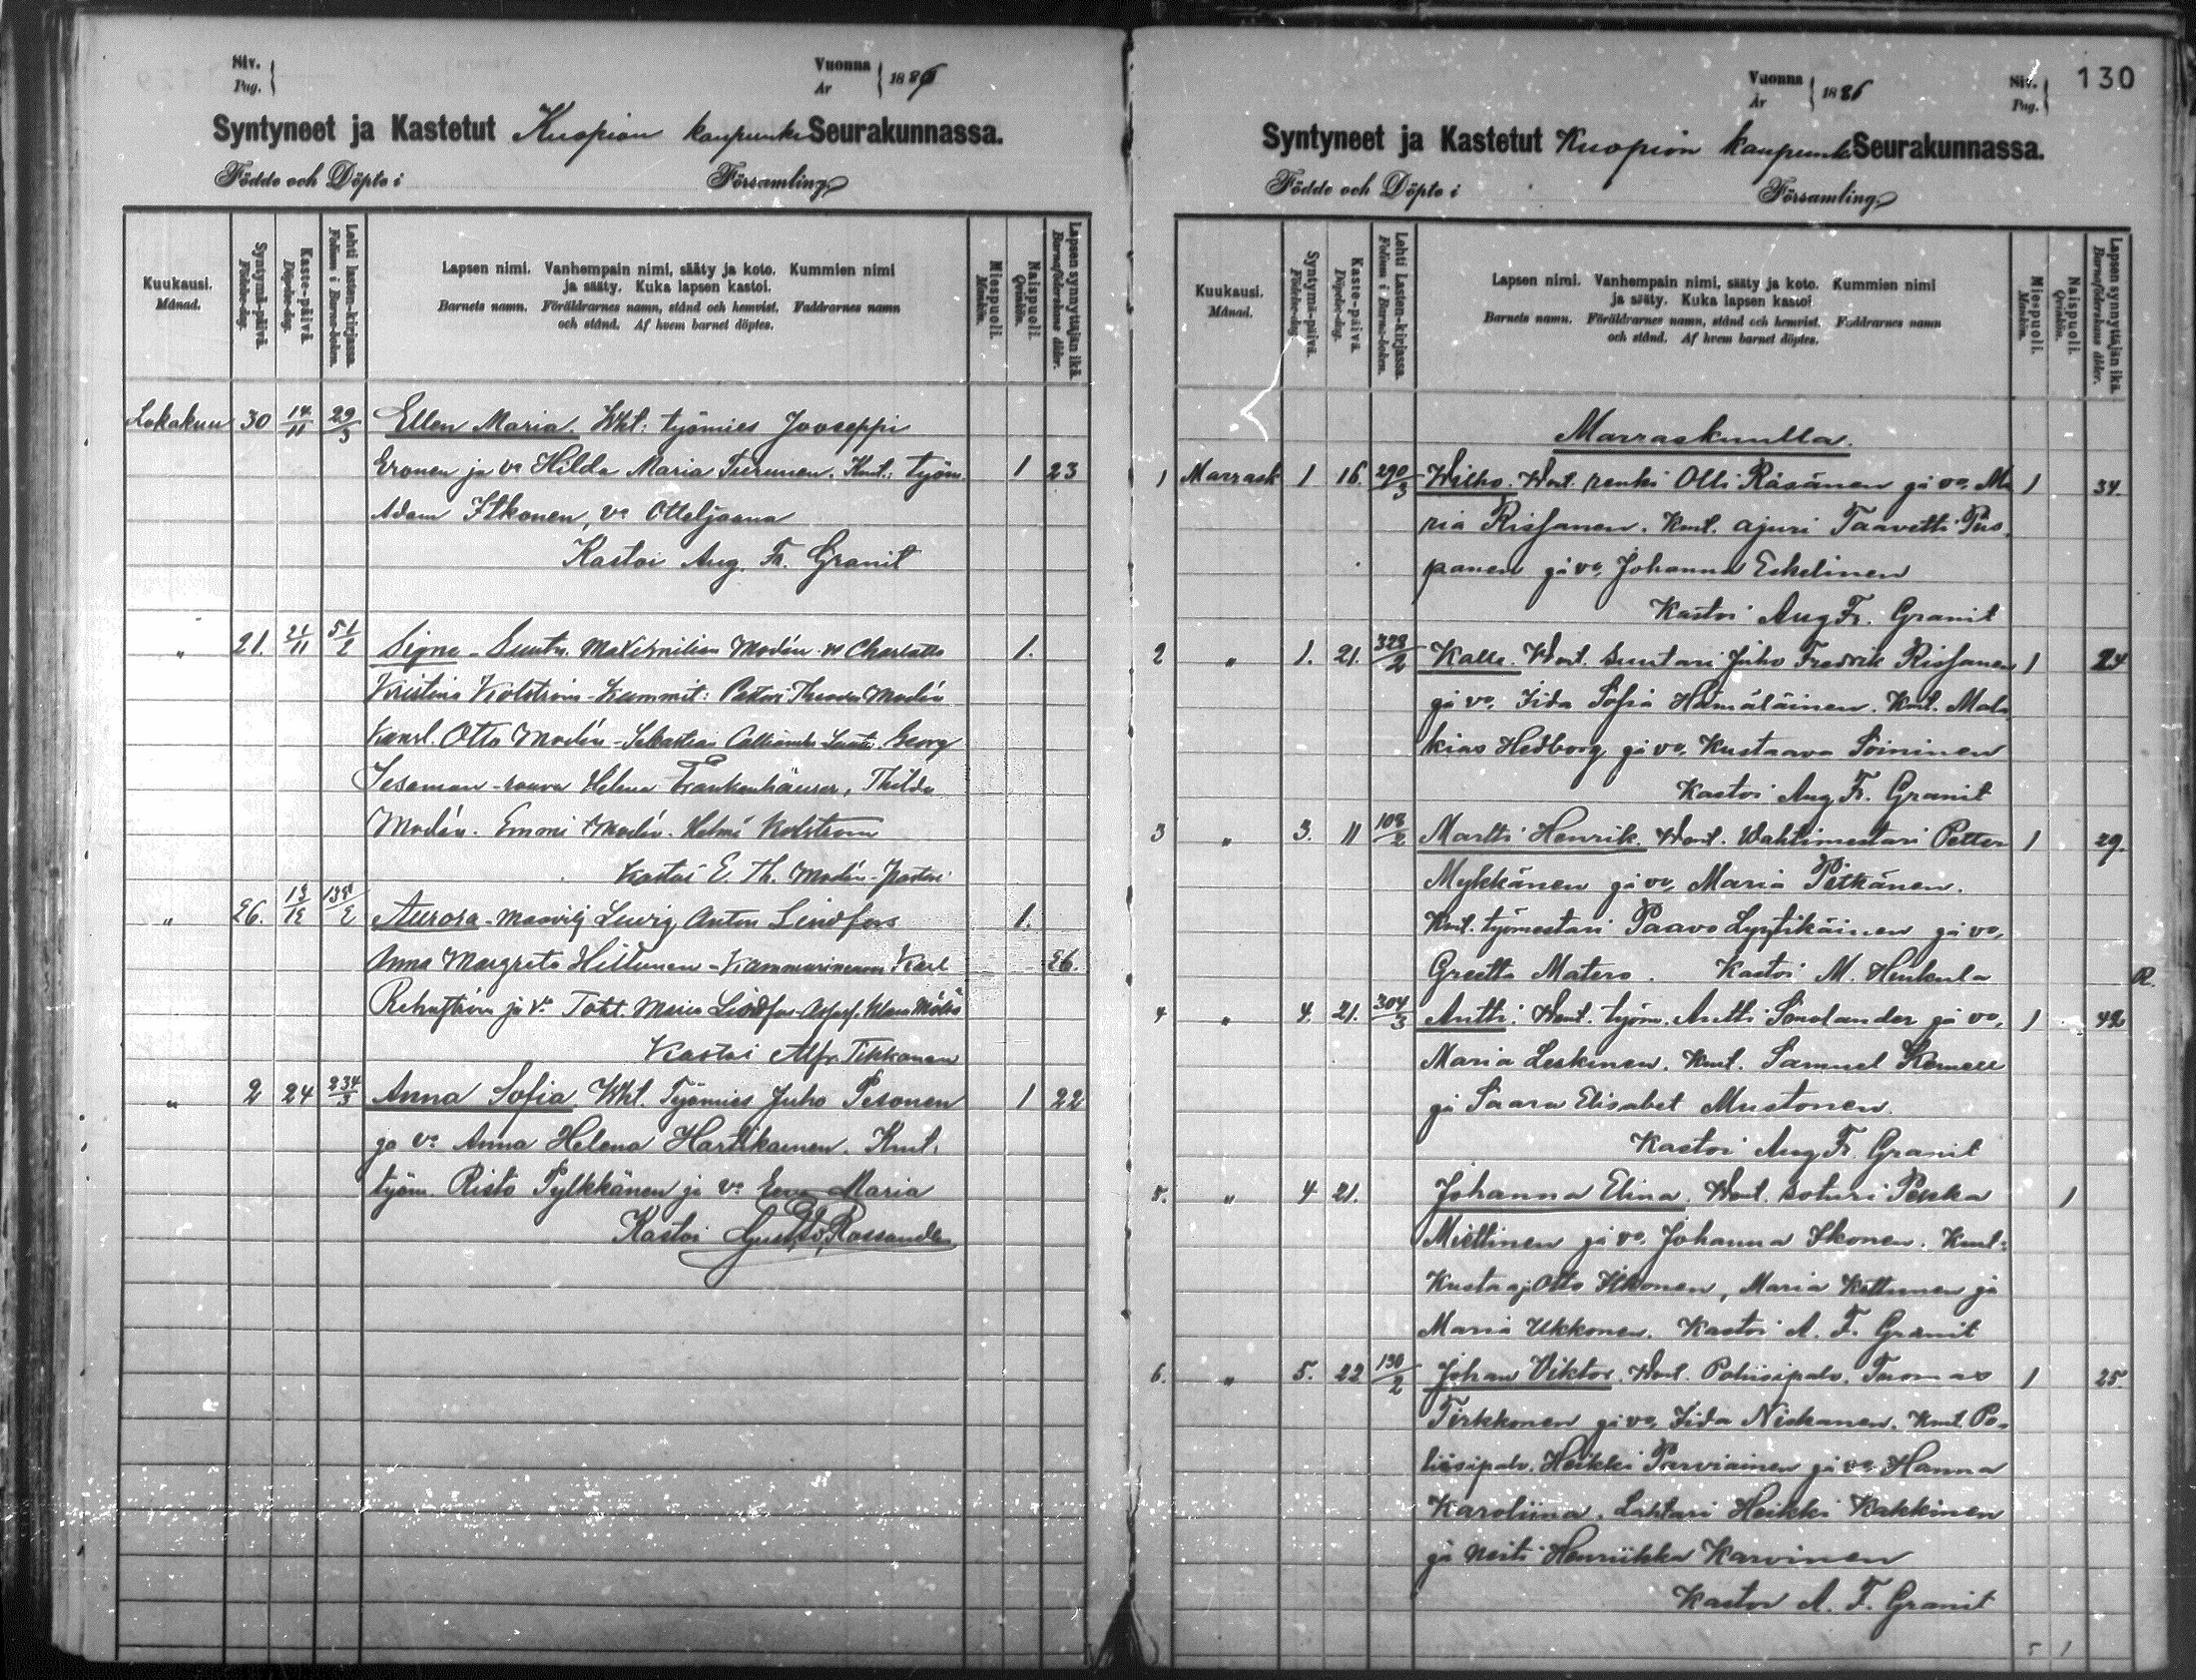 Siv.
Pag.
Vuonna
År
1886
Syntyneet ja Kastetut Kuopion kaupunki Seurakunnassa.
Födde och Döpte i Församling.
Kuukausi.
Månad.
Syntymä-päivä.
Födelse-dag.
Kaste-päivä.
Döpelse-dag.
Lehti lasten-kirjassa.
Folium i Barna-boken.
Lapsen nimi. Vanhempain nimi, sääty ja koto. Kummien nimi
ja sääty. Kuka lapsen kastoi.
Barnets namn. Föräldrarnes namn, stånd och hemvist. Faddrarnes namn
och stånd. Af hvem barnet döptes.
Miespuoli.
Mankön.
Naispuoli.
Qvinkön.
Lapsen synnyttäjän ikä.
Barnaföderskans ålder.
Lokakuu 30 14/11 29/3 Ellen Maria. Wht: työmies Jooseppi
Eronen ja vo Hilda Maria Turunen. Kmt.: työm. 1 23
Adam Itkonen, vo Otteljaana
Kastoi Aug. Fr. Granit
" 21. 21/11 51/2 Signe - Maximilian Modén Charlotta 1.
Kristina Kolström - Kummit: Pastori Theodor Modén
Otto Modén - Georg
rouva Helena Frankenhäuser, Thilda
Modén. Emmi Modén. Helmi Kolström
Kastoi E. Th. Modén - Pastori
" 26. Aurora - Ludvig Anton Lindfors 1.
Anna Margreta Hiltunen - Karl 26.
ja vo Maria
Kastoi Alfr. Tikkanen
" 2 24 234/3 Anna Sofia Wht. Työmies Juho Pesonen 1 22
ja vo Anna Helena Hartikainen. Kmt.
työm. Risto Pylkkänen ja vo Eeva Maria
Kastoi Rossander
Vuonna
År
1886
Siv.
Pag.
130
Syntyneet ja Kastetut Kuopion kaupunki Seurakunnassa.
Födde och Döpte i Församling.
Kuukausi.
Månad.
Syntymä-päivä.
Födelse-dag.
Kaste-päivä.
Döpelse-dag.
Lehti Lasten-kirjassa.
Folium i Barna-boken.
Lapsen nimi. Vanhempain nimi, sääty ja koto. Kummien nimi
ja sääty. Kuka lapsen kastoi.
Barnets namn. Föräldrarnes namn, stånd och hemvist. Faddrarnes namn
och stånd. Af hvem barnet döptes.
Miespuoli.
Mankön.
Naispuoli.
Qvinkön.
Lapsen synnyttäjän ikä.
Barnaföderskans ålder.
Marraskuulla.
1 Marrask 1 16. 290/3 Wilho. Wmt. renki Olli Räsänen ja vo, Ma 1 34.
ria Rissanen. Kmt. ajuri Taavetti
panen ja vo, Johanna Eskelinen
Kastoi Aug Fr. Granit
2 " 1. 21. 328/2 Kalle. Wmt. suutari Juho Fredrik Rissanen 1 24
ja vo, Iida Sofia Hämäläinen. Kmt. Mala
kias Hedborg ja vo, Kustaava Soininen
Kastoi Aug Fr. Granit
3 " 3. 11 108/2 Martti Henrik. Wmt. Wahtimestari Petter 1 29.
Mykkänen ja vo, Maria Pitkänen.
Kmt. työmestari Paavo Lyytikäinen ja vo,
Greetta Matero. Kastoi M.
R.
4 " 4. 21. 304/3 Antti. Wmt. työm. Antti ja vo, 1 42
Maria Leskinen. Kmt. Samuel
ja Saara Elisabet Mustonen.
Kastoi Aug Fr. Granit
5. " 4 21. Johanna Elina. Wmt. soturi Pekka 1
Miettinen ja vo, Johanna Ikonen. Kmt.
Otto Ikonen, Maria Kettunen ja
Maria Ukkonen. Kastoi A. F. Granit
6. " 5. 22 190/2 Johan Viktor. Wmt. Poliisipalv. Tuomas 1 25.
Tirkkonen ja vo, Iida Niskanen. Kmt. Po-
liisipalv. Heikki Parviainen ja vo Hanna
Karoliina, Lahtari Heikki Kakkinen
ja neiti Henriikka Karvinen
Kastoi A. F. Granit
5 1